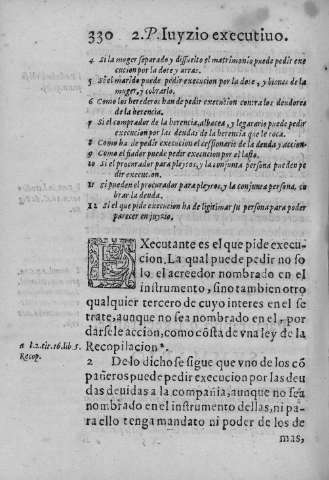 330 2.P. Iuyzio executiuo.
4 Si la muger separado y dissuelto el matrimonio puede pedir exe
cucion por la dote y arras.
5 Si el marido puede pedir execucion por la dote, y bienes de la
muger, y cobrarlo.
6 Como los herederos han de pedir execution contra los deudores
de la herencia.
7 Si el comprador de la herencia, albacea, y legatario puede pedir
execucion por las deudas de la herencia que le toca.
8 Como ha de pedir execucion el cessionario de la deuda y accion.
9 Como el fiador puede pedir execucion por el lasto.
10 Si el procurador para pleytos, y la conjunta persona pueden pe
dir execucion.
11 Si pueden el procurador para pleytos, y la conjunta persona, co
brar la deuda.
12 Si el que pide execucion ha de legitimar su persona para poder
parecer en juyzio.
EXecutante es el que pide execu-
cion. La qual puede pedir no so
lo el acreedor nombrado en el
instrumento, sino tambien otro
qualquier tercero de cuyo interes en el se
trate, aunque no sea nombrado en el, por
darsele accion, como cõsta de vna ley de la
Recopilacion a.
a l.2.tit.16.lib 5.
Recop.
2 De lo dicho se sigue que vno de los cõ
pañeros puede pedir execucion por las deu
das deuidas a la compañia, aunque no sea
nombrado en el instrumento dellas, ni pa-
ra ello tenga mandato ni poder de los de
mas,